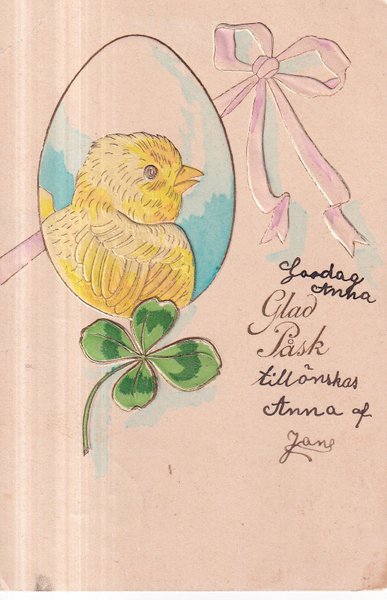 Lördag
Anna
Glad
Påsk
tillönskas
Anna af
Jane